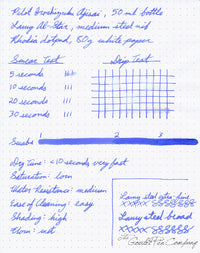 Pilot Iroshizuku Ajisai, 50 ml bottle
Lamy Al-Star, medium steel nib
Rhodia dotpad, 80g white paper
Smear Test
Drip Test
5 seconds
10 seconds
20 seconds
30 seconds
Swabs
1
2
3
Dry Time: <10 seconds very fast
Saturation: low
Water Resistance: medium
Ease of Cleaning: easy
Shading: high
Flow: wet
Lamy steel extra-fine
Lamy steel broad
The Goulet Pen Company